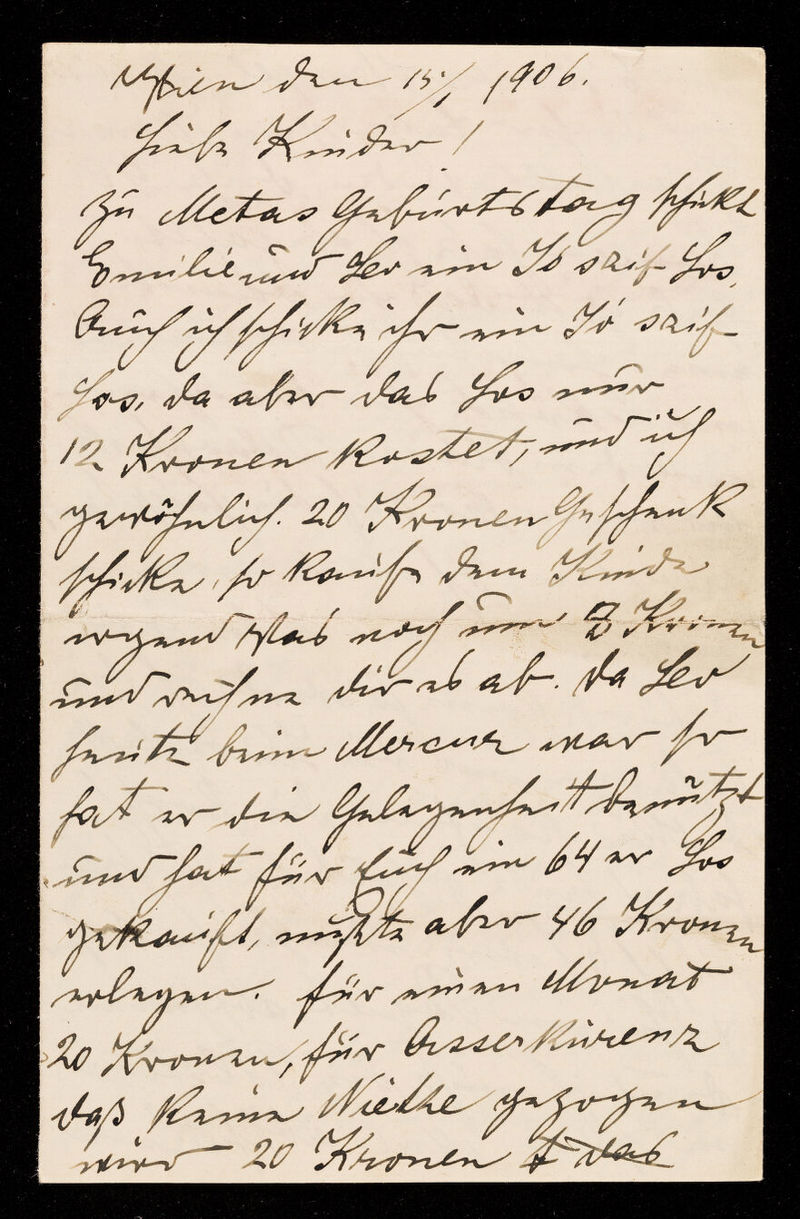 Wien den 15/1 1906.
Liebe Kinder!
Zu Metas Geburtstag schickt
Emilie und Leo ein Jó sziv Los.
Auch ich schicke ihr ein Jó sziv
Los, da aber das Los nur
12 Kronen kostet, und ich
gewöhnlich 20 Kronen Geschenk
schicke, so kaufe dem Kinde
irgend Was noch um 8 Kronen
und rechne dir es ab. Da Leo
heute beim Mercur war so
hat er die Gelegenheit benützt
und hat für Euch ein 64er Los
gekauft, mußte aber 46 Kronen
erlegen. für einen Monat
20 Kronen, für Asserkurenz
daß keine Niethe gezogen
wird 20 Kronen das